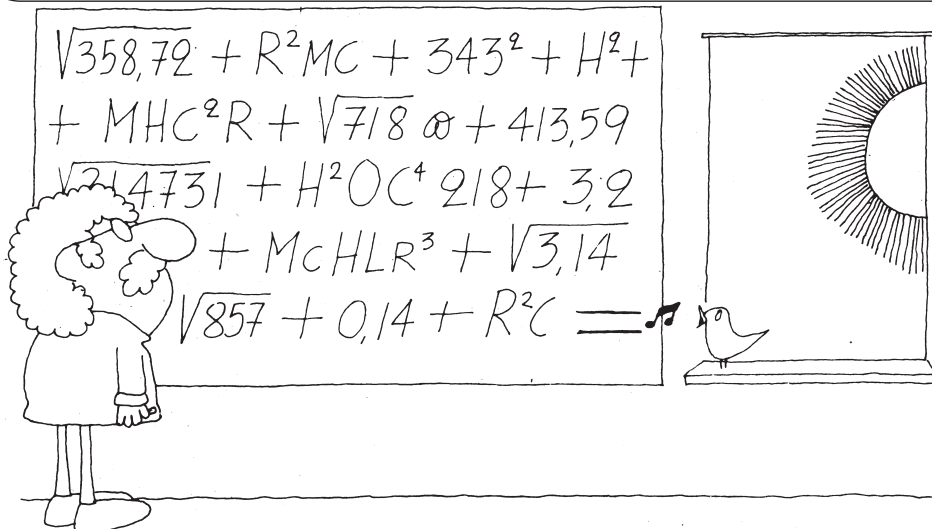 √358,72 + R²MC + 343² + H² +
+ MHC²R + √718 ∞ + 413,59
√314731 + H²OC⁴ 218 + 3,2
+ McHLR³ + √3,14
√857 + 0,14 + R²C =